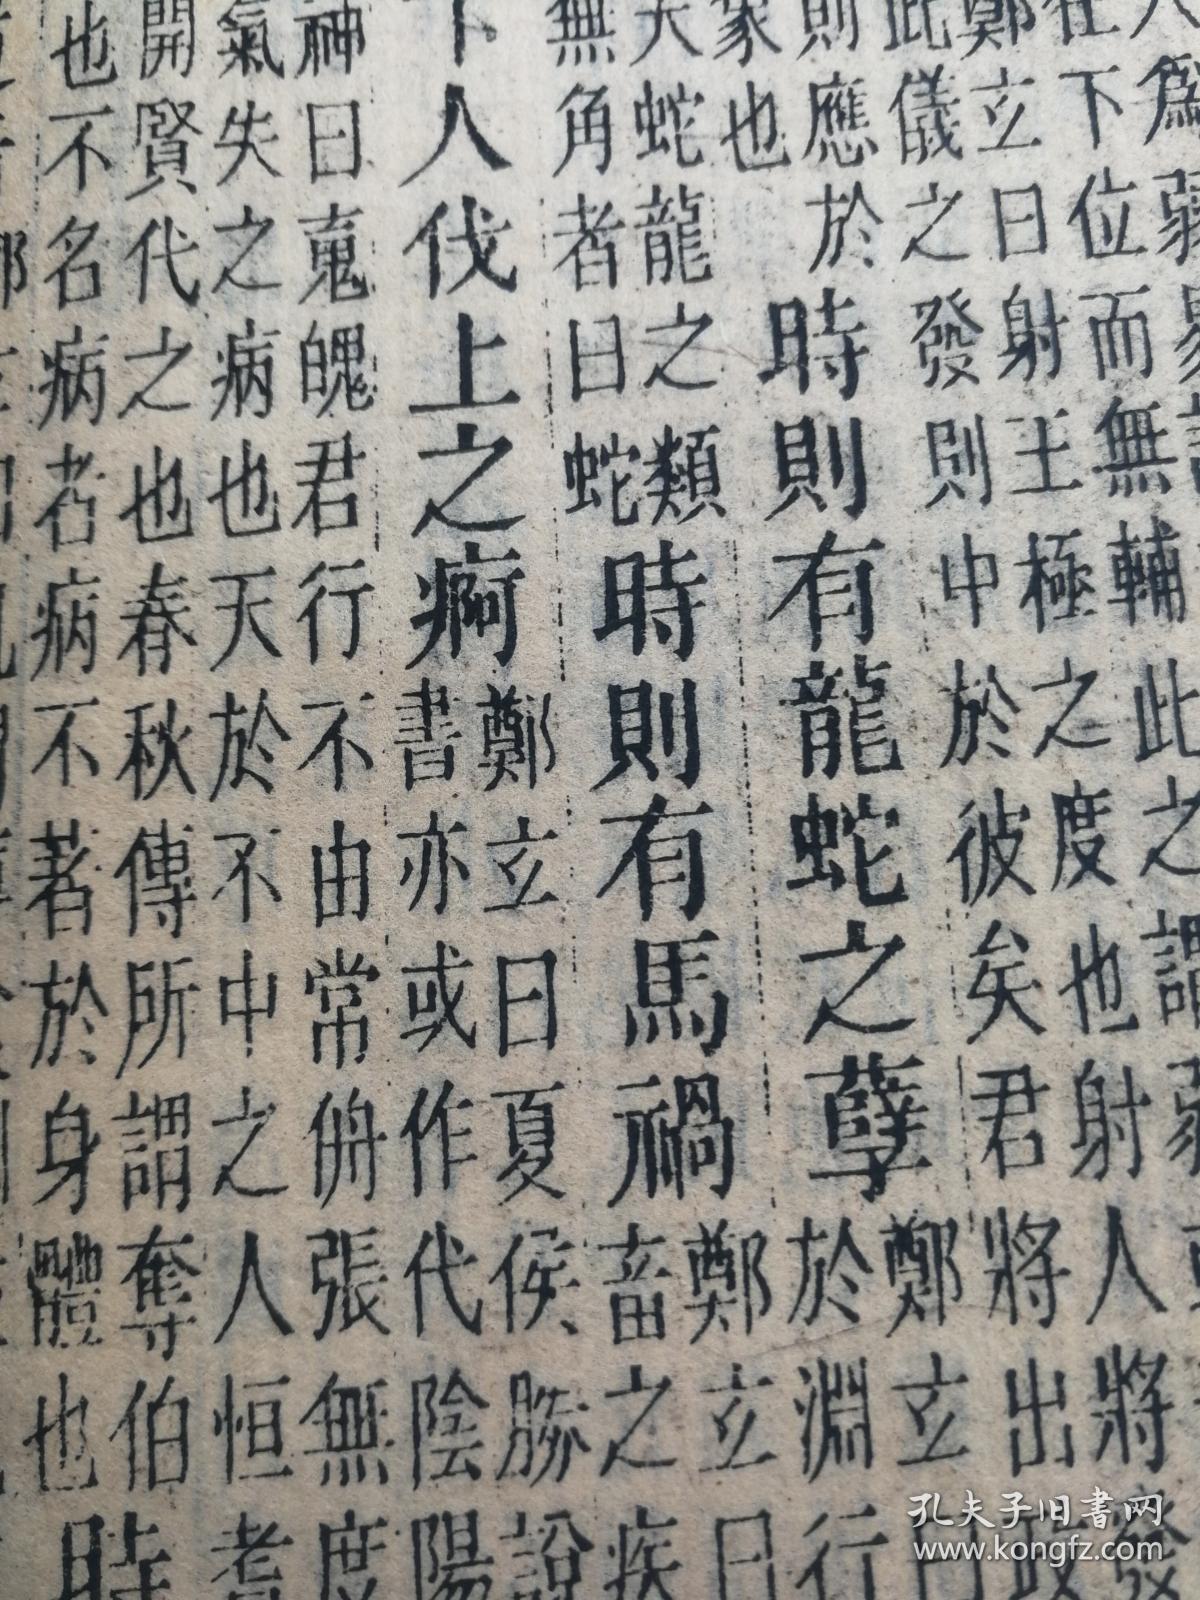 人爲弱易
在下位而無輔此之謂弱
鄭玄曰射王極之度也射人將發
此儀之發則中於彼矣君將出政
則應於
家也
時則有龍蛇之孽
鄭玄曰
於淵行
夭蛇龍之類
無角者曰蛇
時則有馬禍
鄭玄曰
畜之疾
下人伐上之痾
鄭玄曰夏侯勝說
書亦或作代陰陽
神曰䰟魄君行不由常侜張無度
氣失之病也天於不中之人恒耆
開賢代之也春秋傳所謂奪伯
也不名病者病不著於身體也
時
孔夫子旧书网
www.kongfz.com